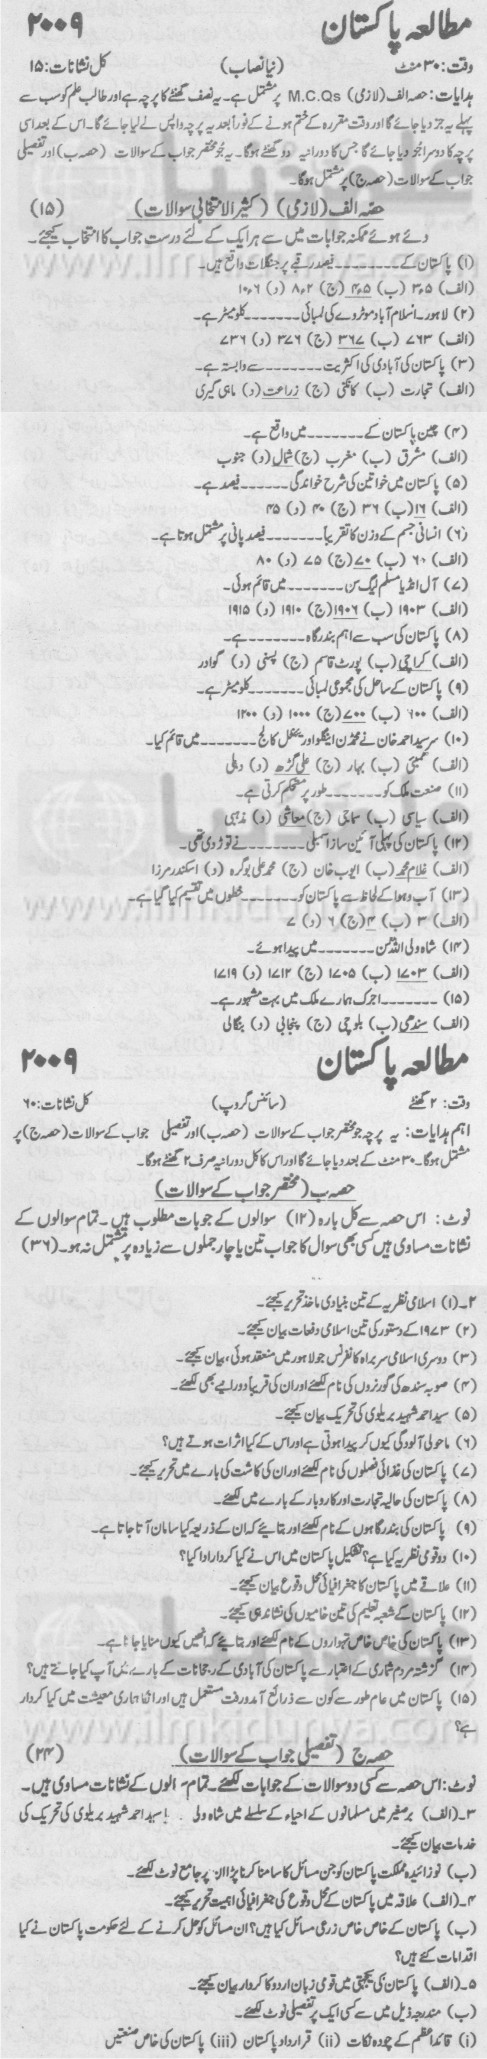 مطالعہ پاکستان ۲۰۰۹
وقت: ۳۰ منٹ (نیا نصاب) کل نشانات: ۱۵
ہدایات: حصہ الف (لازمی) M.C.Qs پر مشتمل ہے۔ یہ نصف گھنٹے کا پرچہ ہے اور طالب علم کو سب سے
پہلے یہ جز دیا جائے گا اور وقت مقررہ کے ختم ہونے کے فوراً بعد یہ پرچہ واپس لے لیا جائے گا۔ اس کے بعد اسی
پرچہ کا دوسرا جز دیا جائے گا جس کا دورانیہ دو گھنٹے ہوگا۔ یہ جز مختصر جواب کے سوالات (حصہ ب) اور تفصیلی
جواب کے سوالات (حصہ ج) پر مشتمل ہوگا۔
حصہ الف (لازمی) (کثیر الانتخابی سوالات) (۱۵)
دئے ہوئے ممکنہ جوابات میں سے ہر ایک کے لئے درست جواب کا انتخاب کیجئے۔
(۱) پاکستان کے ------- فیصد رقبے پر جنگلات واقع ہیں۔
(الف) ۳ء۵ (ب) ۴ء۵ (ج) ۸ء۲ (د) ۱۰ء۶
(۲) لاہور۔ اسلام آباد موٹروے کی لمبائی ------- کلومیٹر ہے۔
(الف) ۷۶۳ (ب) ۳۶۷ (ج) ۳۷۶ (د) ۷۳۶
(۳) پاکستان کی آبادی کی اکثریت ------- سے وابستہ ہے۔
(الف) تجارت (ب) کانکنی (ج) زراعت (د) ماہی گیری
(۴) چین پاکستان کے ------- میں واقع ہے۔
(الف) مشرق (ب) مغرب (ج) شمال (د) جنوب
(۵) پاکستان میں خواتین کی شرح خواندگی ------- فیصد ہے۔
(الف) ۱۶ (ب) ۳۶ (ج) ۴۰ (د) ۴۵
(۶) انسانی جسم کے وزن کا تقریباً ------- فیصد پانی پر مشتمل ہوتا ہے۔
(الف) ۶۰ (ب) ۷۰ (ج) ۷۵ (د) ۸۰
(۷) آل انڈیا مسلم لیگ سن ------- میں قائم ہوئی۔
(الف) ۱۹۰۳ (ب) ۱۹۰۶ (ج) ۱۹۱۰ (د) ۱۹۱۵
(۸) پاکستان کی سب سے اہم بندرگاہ ------- ہے۔
(الف) کراچی (ب) پورٹ قاسم (ج) پسنی (د) گوادر
(۹) پاکستان کے ساحل کی مجموعی لمبائی ------- کلومیٹر ہے۔
(الف) ۶۰۰ (ب) ۷۰۰ (ج) ۱۰۰۰ (د) ۱۲۰۰
(۱۰) سر سید احمد خان نے محمڈن اینگلو اورینٹل کالج ------- میں قائم کیا۔
(الف) ممبئی (ب) بہار (ج) علی گڑھ (د) دہلی
(۱۱) صنعت ملک کو ------- طور پر مستحکم کرتی ہے۔
(الف) سیاسی (ب) سماجی (ج) معاشی (د) مذہبی
(۱۲) پاکستان کی پہلی آئین ساز اسمبلی ------- نے توڑ دی تھی۔
(الف) غلام محمد (ب) ایوب خان (ج) محمد علی بوگرہ (د) اسکندر مرزا
(۱۳) آب و ہوا کے لحاظ سے پاکستان کو ------- خطوں میں تقسیم کیا گیا ہے۔
(الف) ۳ (ب) ۴ (ج) ۶ (د) ۷
(۱۴) شاہ ولی اللہ سن ------- میں پیدا ہوئے۔
(الف) ۱۷۰۳ (ب) ۱۷۰۵ (ج) ۱۷۱۲ (د) ۱۷۱۹
(۱۵) ------- اجرک ہمارے ملک میں بہت مشہور ہے۔
(الف) سندھی (ب) بلوچی (ج) پنجابی (د) بنگالی
مطالعہ پاکستان ۲۰۰۹
وقت: ۲ گھنٹے (سائنس گروپ) کل نشانات: ۶۰
اہم ہدایات: یہ پرچہ جو مختصر جواب کے سوالات (حصہ ب) اور تفصیلی جواب کے سوالات (حصہ ج) پر
مشتمل ہوگا۔ ۳۰ منٹ کے بعد دیا جائے گا اور اس کا کل دورانیہ صرف ۲ گھنٹے ہوگا۔
حصہ ب (مختصر جواب کے سوالات)
نوٹ: اس حصہ سے کل بارہ (۱۲) سوالوں کے جوبات مطلوب ہیں۔ تمام سوالوں کے
نشانات مساوی ہیں کسی بھی سوال کا جواب تین یا چار جملوں سے زیادہ پر مشتمل نہ ہو۔ (۳۶)
۲۔(۱) اسلامی نظریہ کے تین بنیادی ماخذ تحریر کیجئے۔
(۲) ۱۹۷۳ کے دستور کی تین اسلامی دفعات بیان کیجئے۔
(۳) دوسری اسلامی سربراہ کانفرنس جو لاہور میں منعقد ہوئی، بیان کیجئے۔
(۴) صوبہ سندھ کی گورنروں کی نام لکھئے اور ان کی قریباً دورانیے بھی لکھئے۔
(۵) سید احمد شہید بریلوی کی تحریک بیان کیجئے۔
(۶) ماحولی آلودگی کیوں کر پیدا ہوتی ہے اور اس کے کیا اثرات ہوتے ہیں؟
(۷) پاکستان کی غذائی فصلوں کی نام لکھئے اور ان کی کاشت کی بارے میں تحریر کیجئے۔
(۸) پاکستان کی حالیہ تجارت اور کاروبار کے بارے میں لکھئے۔
(۹) پاکستان کی بندرگاہوں کے نام لکھئے اور بتایئے کہ ان کے ذریعہ کیا سامان آتا جاتا ہے۔
(۱۰) دو قومی نظریہ کیا ہے؟ تشکیل پاکستان میں اس نے کیا کردار ادا کیا؟
(۱۱) علاقے میں پاکستان کا جغرافیائی محل وقوع بیان کیجئے۔
(۱۲) پاکستان کے شعبہ تعلیم کی تین خامیوں کی نشاندہی کیجئے۔
(۱۳) پاکستان کی خاص خاص تہواروں کے نام لکھئے اور بتایئے کہ انھیں کیوں منایا جاتا ہے۔
(۱۴) گزشتہ مردم شماری کے اعتبار سے پاکستان کی آبادی کے رجحانات کے بارے میں آپ کیا جانتے ہیں؟
(۱۵) پاکستان میں عام طور سے کون سے ذرائع آمدورفت مستعمل ہیں اور انکا ہماری معیشت میں کیا کردار
ہے؟
حصہ ج (تفصیلی جواب کے سوالات) (۲۴)
نوٹ: اس حصہ سے کسی دو سوالات کے جوابات لکھئے۔ تمام سوالوں کے نشانات مساوی ہیں۔
۳۔(الف) برصغیر میں مسلمانوں کے احیاء کے سلسلے میں شاہ ولی یا سید احمد شہید بریلوی کی تحریک کی
خدمات بیان کیجئے۔
(ب) نوزائیدہ مملکت پاکستان کو جن مسائل کا سامنا کرنا پڑا ان پر جامع نوٹ لکھئے۔
۴۔(الف) علاقہ میں پاکستان کے محل وقوع کی جغرافیائی اہمیت تحریر کیجئے۔
(ب) پاکستان کے خاص خاص زرعی مسائل کیا ہیں؟ ان مسائل کو حل کرنے کے لئے حکومت پاکستان نے کیا
اقدامات کئے ہیں؟
۵۔(الف) پاکستان کی یکجہتی میں قومی زبان اردو کا کردار بیان کیجئے۔
(ب) مندرجہ ذیل میں سے کسی ایک پر تفصیلی نوٹ لکھئے۔
(i) قائداعظم کے چودہ نکات (ii) قرارداد پاکستان (iii) پاکستان کی خاص صنعتیں